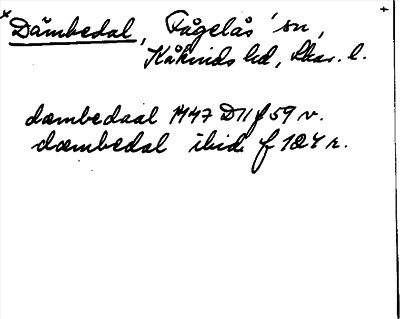 × Dämbedal, Fågelås' sn,
Kåkinds hd, Skar. l.
dæmbedaal 1447 D11 f 59 v.
dæmbedal ibid. f 124 r.